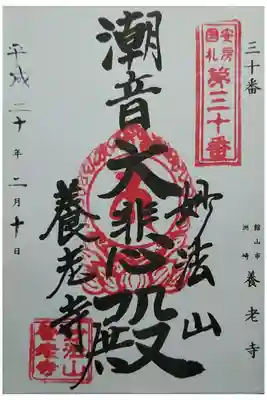 三十番
館山市
洲崎
養老寺
安房
国札
第三十番
妙法山
潮音大悲殿
養老寺
平成二十年二月十日